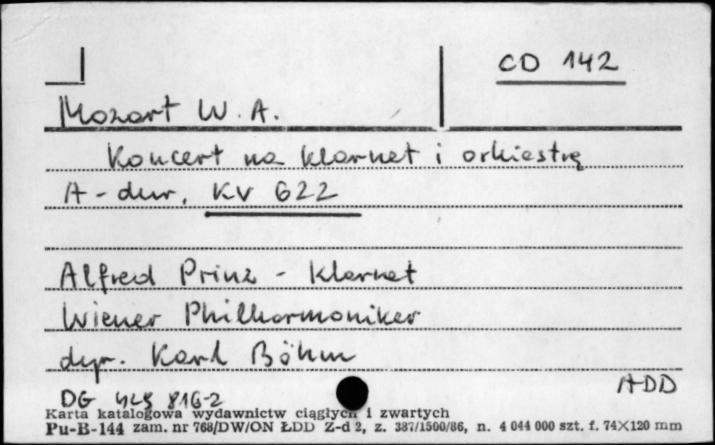 CD 142
Mozart W. A.
Koncert na klarnet i orkiestrę
A-dur, KV 622
Alfred Prinz - klarnet
Wiener Philharmoniker
dyr. Karl Böhm
ADD
DG 429 816-2
Karta katalogowa wydawnictw ciągłych i zwartych
Pu-B-144 zam. nr 768/DW/ON ŁDD Z-d 2, z. 387/1500/86, n. 4 044 000 szt. f. 74×120 mm